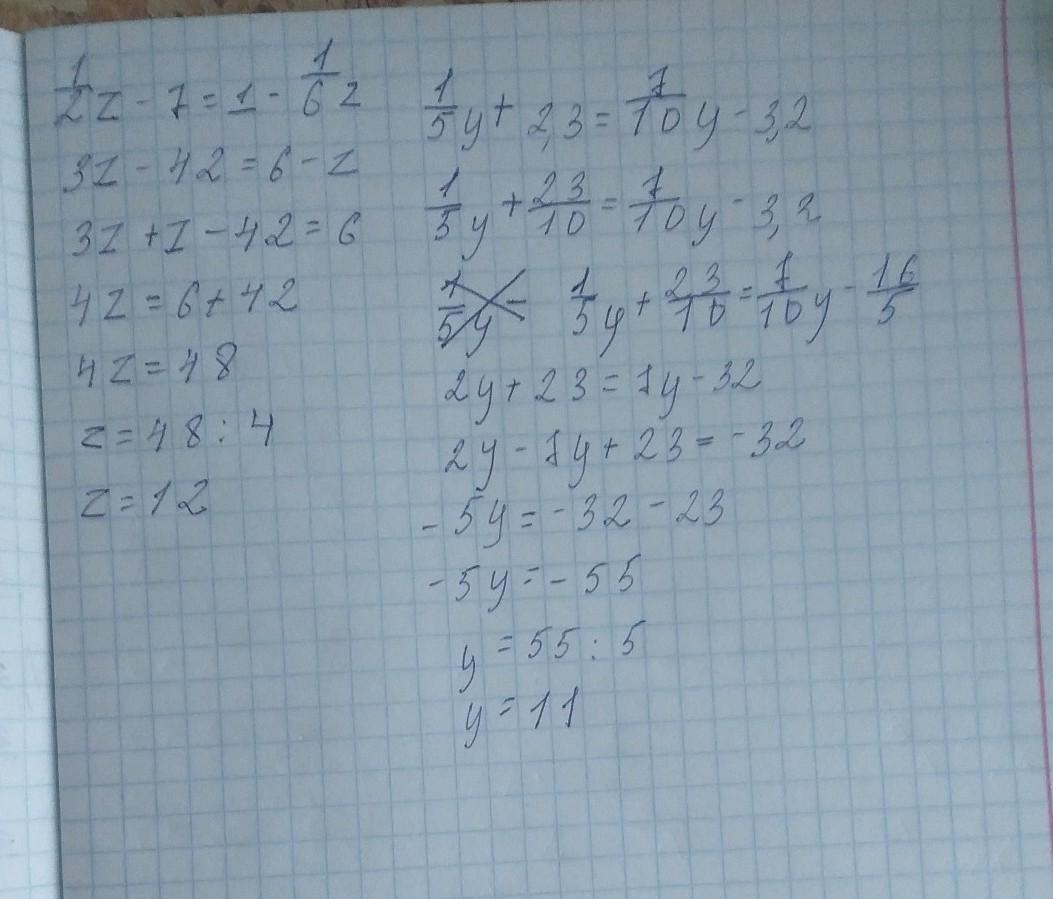 1/2 z - 7 = 1 - 1/6 z
3z - 42 = 6 - z
3z + z - 42 = 6
4z = 6 + 42
4z = 48
z = 48 : 4
z = 12
1/5 y + 2,3 = 7/10 y - 3,2
1/5 y + 23/10 = 7/10 y - 3,2
1/5 y + 23/10 = 7/10 y - 16/5
2y + 23 = 7y - 32
2y - 7y + 23 = -32
-5y = -32 - 23
-5y = -55
y = 55 : 5
y = 11